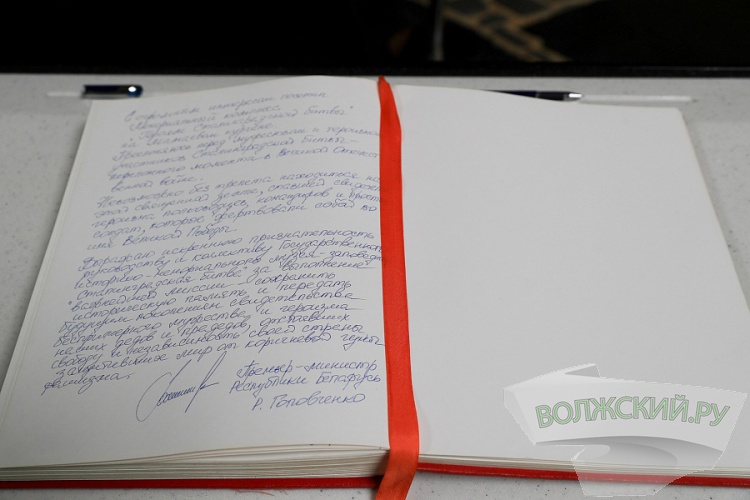 С огромным интересом посетил
"Мемориальный комплекс
"Героям Сталинградской битвы"
на Мамаевом кургане.
Преклоняюсь перед мужеством и героизмом
участников Сталинградской битвы –
переломного момента в Великой Отечест
венной войне.
Невозможно без трепета находиться на
этой священной земле, ставшей свидетелем
героизма полководцев, командиров и простых
солдат, которые жертвовали собой во
имя Великой Победы.
Выражаю искреннюю признательность
руководству и коллективу Государственного
историко-мемориального музея-заповедника
"Сталинградская битва" за выполнение
важнейшей миссии – сохранить
историческую память и передать
будущим поколениям свидетельства
беспримерного мужества и героизма
наших дедов и прадедов, отстоявших
свободу и независимость своей страны,
защитивших мир от коричневой чумы
фашизма.
Премьер-министр
Республики Беларусь
Р. Головченко
ВОЛЖСКИЙ.РУ